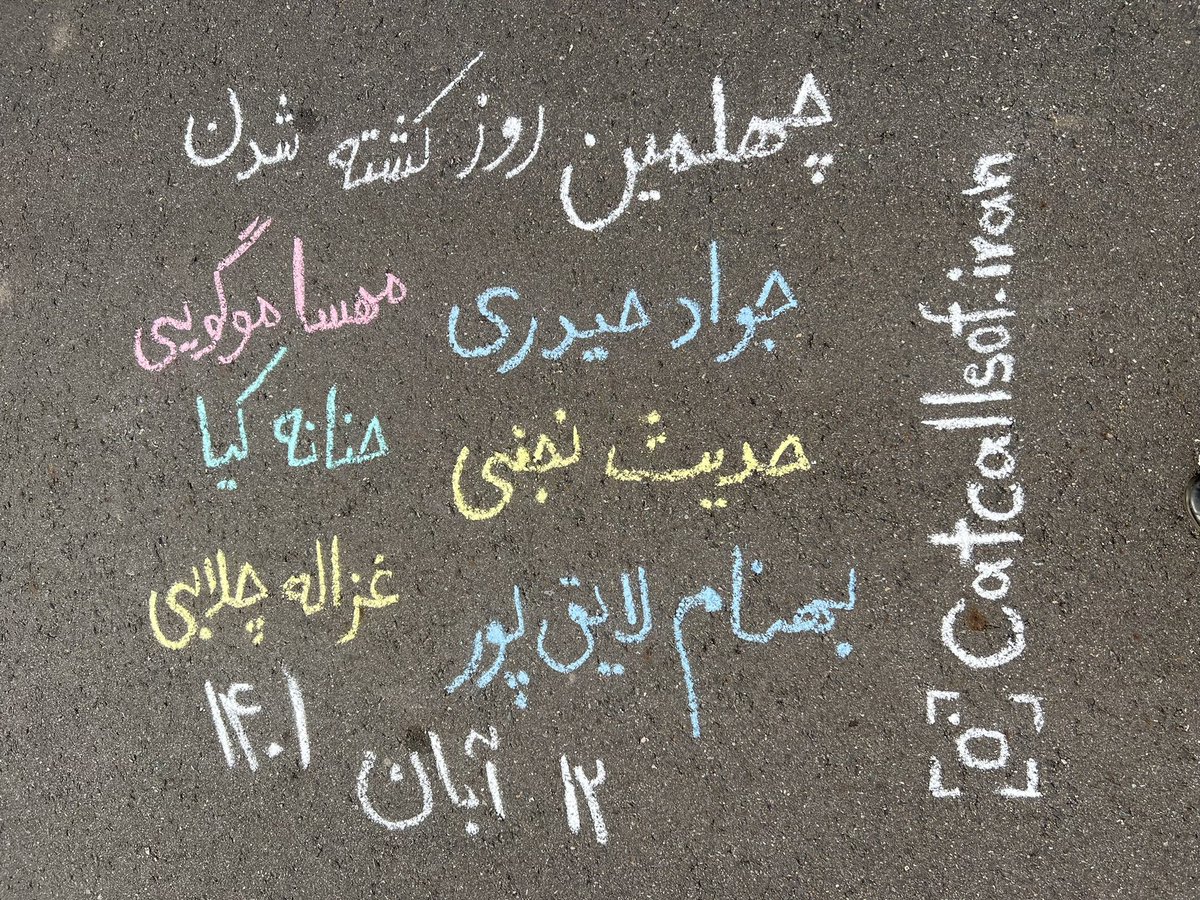 چهلمین روز کشته شدن
جواد حیدری مهسا موگویی
حدیث نجفی حنانه کیا
بهنام لایق پور غزاله چلابی
۱۲ آبان ۱۴۰۱
Catcallsof.iran